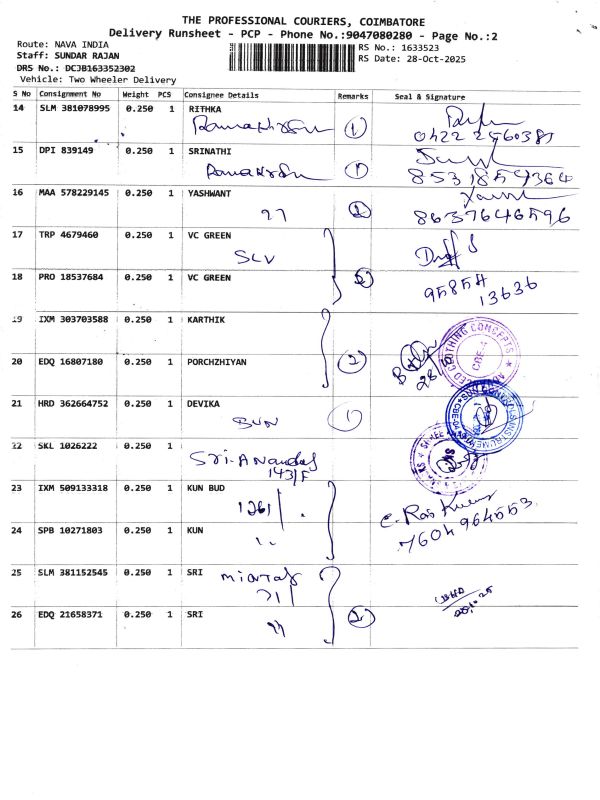 THE PROFESSIONAL COURIERS, COIMBATORE
Delivery Runsheet - PCP - Phone No.:9047080280 - Page No.:2
Route: NAVA INDIA
RS No.: 1633523
Staff: SUNDAR RAJAN
RS Date: 28-Oct-2025
DRS No.: DCJB163352302
Vehicle: Two Wheeler Delivery
S No Consignment No Weight PCS Consignee Details Remarks Seal & Signature
14 SLM 381078995 0.250 1 RITHKA
1
0422 2560381
15 DPI 839149 0.250 1 SRINATHI
1
8531854364
16 MAA 578229145 0.250 1 YASHWANT
8637646596
17 TRP 4679460 0.250 1 VC GREEN
SLV
18 PRO 18537684 0.250 1 VC GREEN
95854
13636
19 IXM 303703588 0.250 1 KARTHIK
20 EDQ 16807180 0.250 1 PORCHZHIYAN
2
CLOTHING CONCEPTS
CBE-4
21 HRD 362664752 0.250 1 DEVIKA
SUN
1
22 SKL 1026222 0.250 1
Sri. Anandas
143/F
23 IXM 509133318 0.250 1 KUN BUD
1261/
24 SPB 10271803 0.250 1 KUN
7604964553
25 SLM 381152545 0.250 1 SRI
71/
26 EDQ 21658371 0.250 1 SRI
2